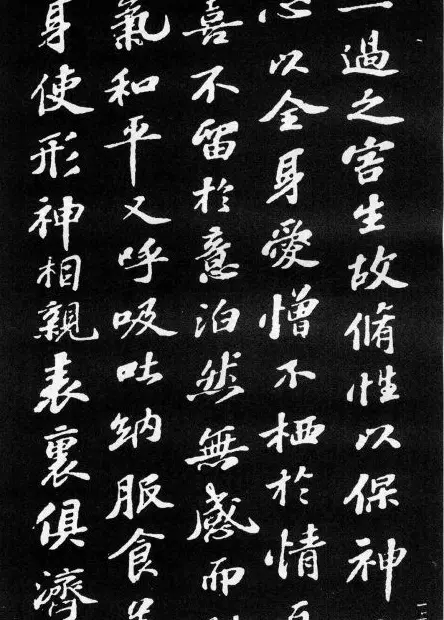 一過之害生故脩性以保神
心以全身愛憎不栖於情
喜不留於意泊然無感而
氣和平又呼吸吐納服食
身使形神相親表裏俱濟